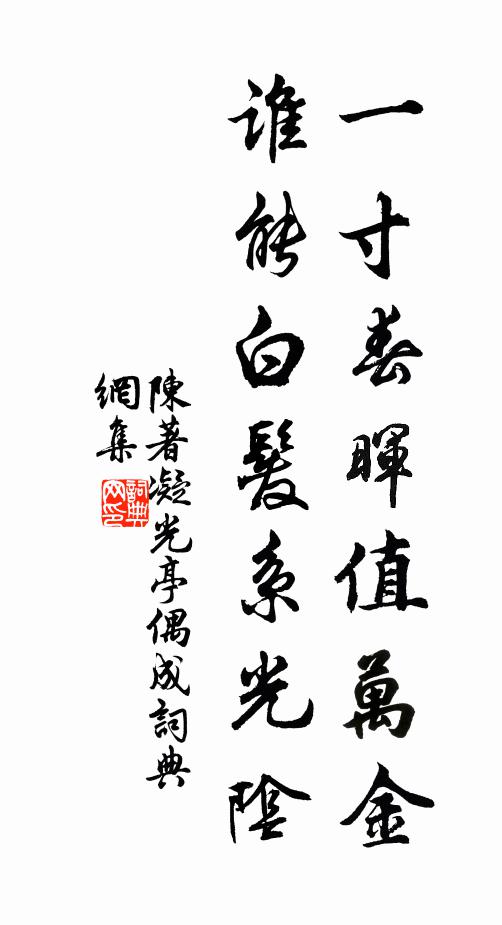 一寸春暉值萬金
誰能白髮系光陰
陳著凝光亭偶成詞典
網集
詞典
网印